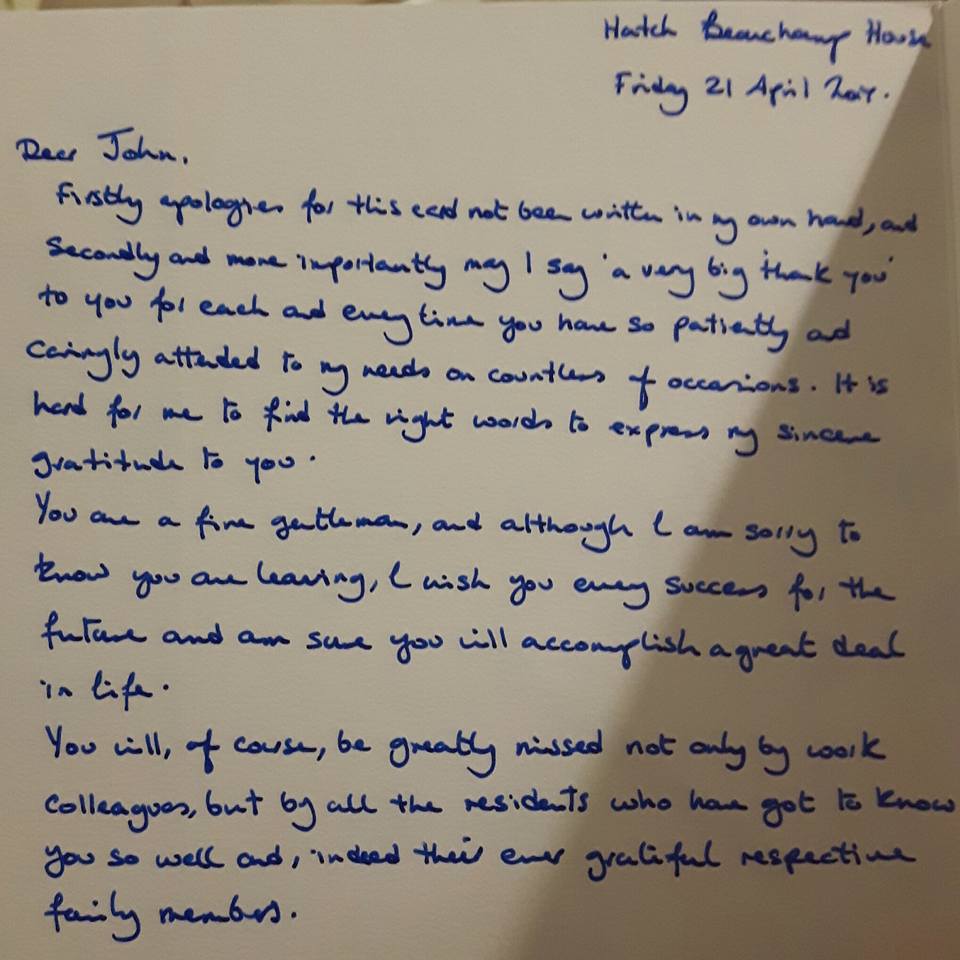 Hatch Beauchamp House
Friday 21 April 2017.
Dear John,
Firstly apologies for this card not been written in my own hand, and
Secondly and more importantly may I say 'a very big thank you'
to you for each and every time you have so patiently and
caringly attended to my needs on countless of occasions. It is
hard for me to find the right words to express my sincere
gratitude to you.
You are a fine gentleman, and although I am sorry to
know you are leaving, I wish you every success for the
future and am sure you will accomplish a great deal
in life.
You will, of course, be greatly missed not only by work
colleagues, but by all the residents who have got to know
you so well and, indeed their ever grateful respective
family members.